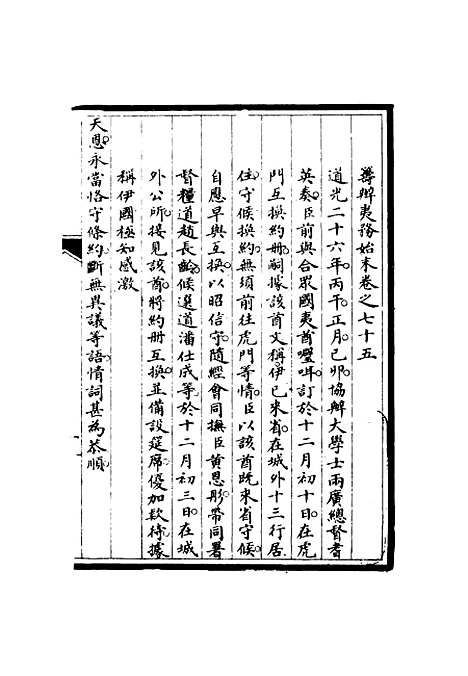 籌辦夷務始末卷之七十五
道光二十六年丙午正月己卯協辦大學士兩廣總督耆
英奏臣前與合眾國夷酋㘔咡訂於十二月初十日在虎
門互換約冊嗣據該酋文稱伊已來省在城外十三行居
住守候換約無須前往虎門等情臣以該酋既來省守候
自應早與互換以昭信守隨經會同撫臣黃恩彤帶同署
督糧道趙長齡候選道潘仕成等於十二月初三日在城
外公所接見該酋將約冊互換並備設筵席優加款待據
稱伊國極知感激
天恩永當恪守條約斷無異議等語情詞甚為恭順